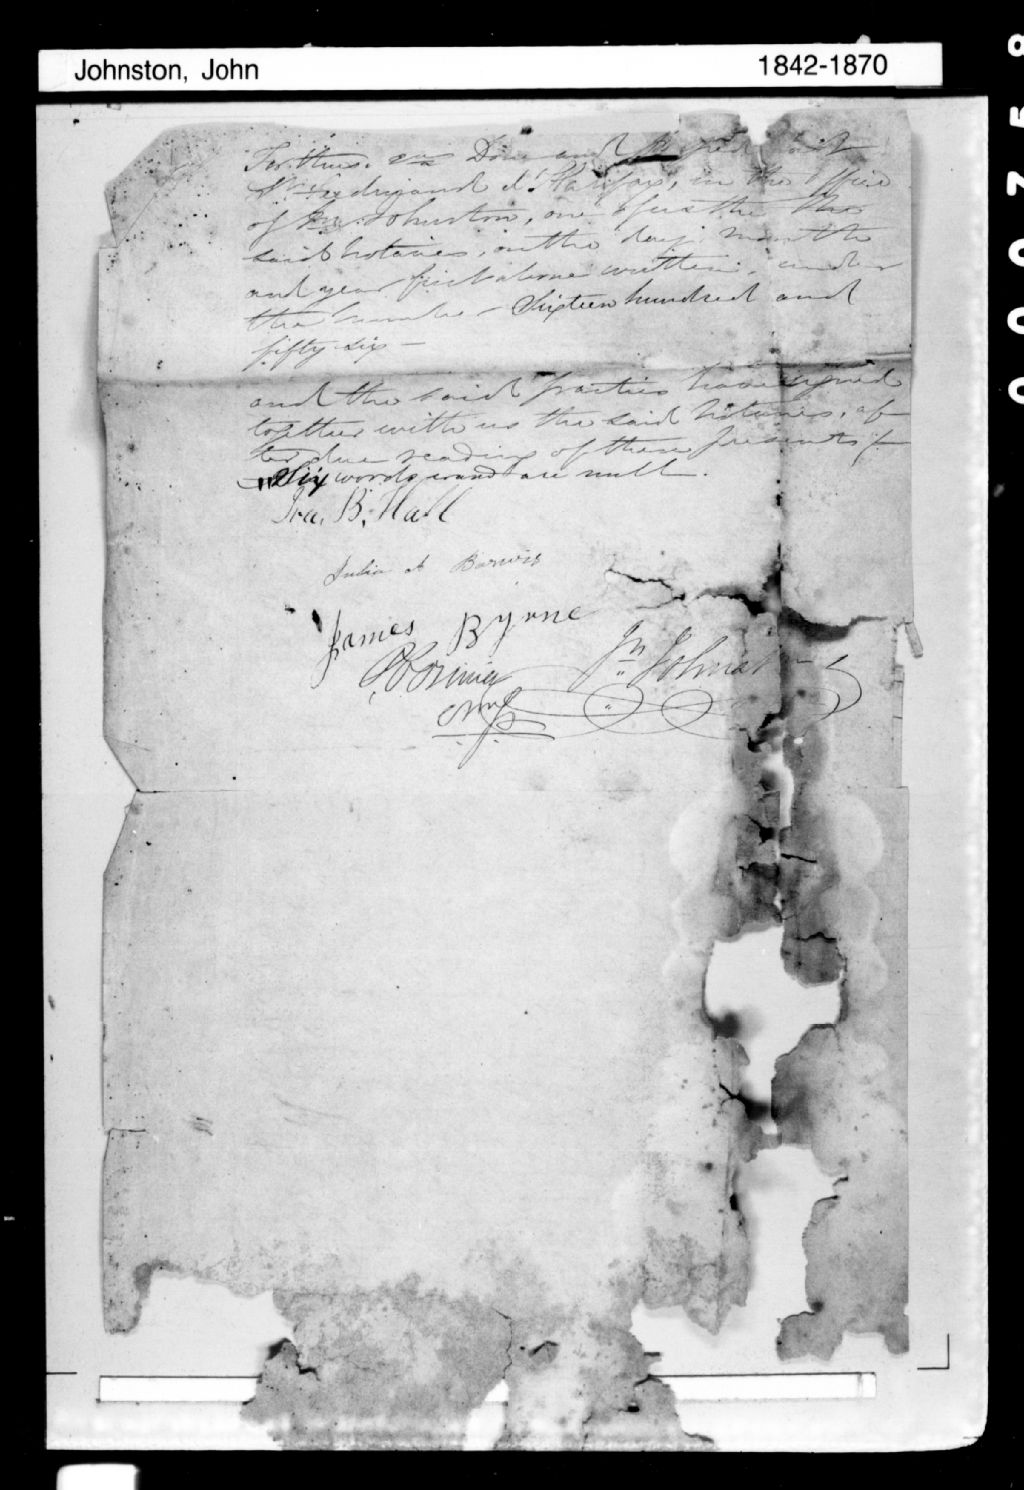 Johnston, John 1842-1870
For thus. &ca Done and passed at
St Ferdinand d'Halifax, in the office
of Jn. Johnston, one of us the
said Notaries, on the day, month
and year first above written, under
the number Sixteen hundred and
fifty six —
and the said parties have signed
together with us the said Notaries, af-
ter due reading of these presents /-
Six words erased are null.
Ira. B. Hall
Julia A Barwis
James Byrne
NP
Jn Johnston
000758